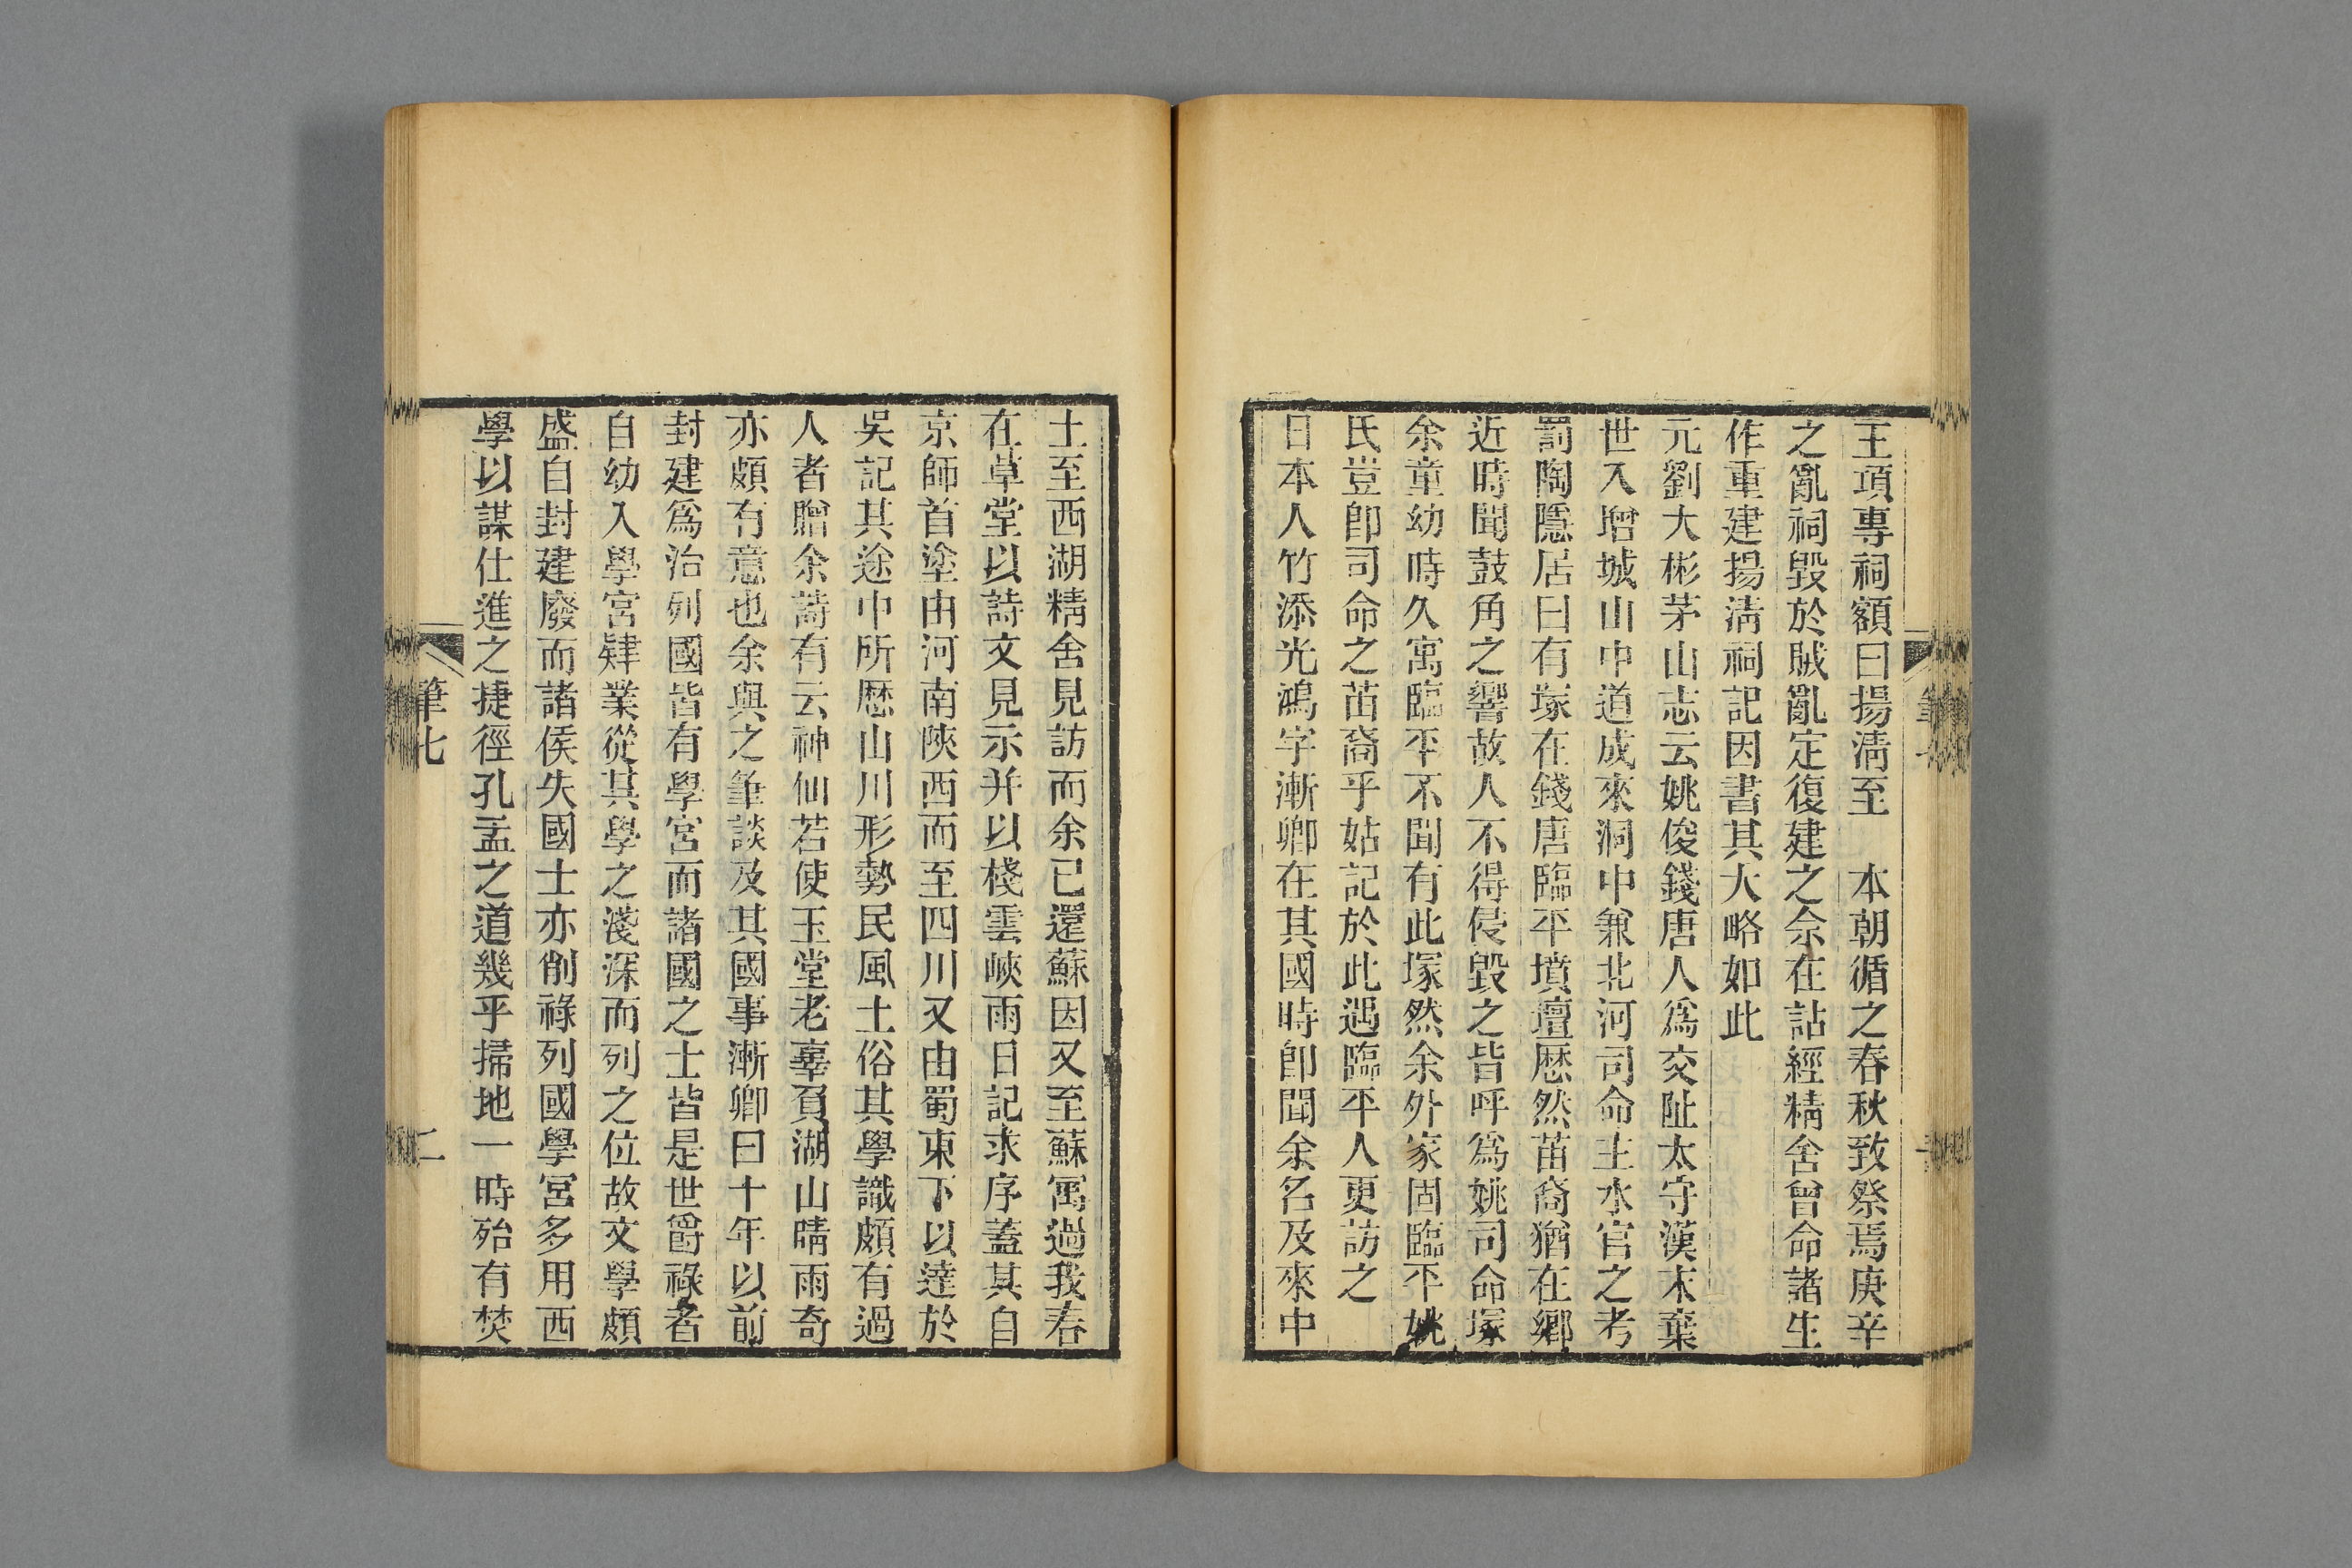 王項專祠額曰揚淸至　本朝循之春秋致祭焉庚辛
之亂祠毀於賊亂定復建之余在詁經精舍曾命諸生
作重建揚淸祠記因書其大略如此
元劉大彬茅山志云姚俊錢唐人爲交阯太守漢末棄
世入增城山中道成來洞中兼北河司命主水官之考
罰陶隱居曰有塚在錢唐臨平墳壇歷然苗裔猶在鄉
近時聞鼓角之響故人不得侵毀之皆呼爲姚司命塚
余童幼時久寓臨平不聞有此塚然余外家固臨平姚
氏豈卽司命之苗裔乎姑記於此遇臨平人更訪之
日本人竹添光鴻字漸卿在其國時卽聞余名及來中
土至西湖精舍見訪而余已還蘇因又至蘇寓過我春
在草堂以詩文見示并以棧雲峽雨日記求序蓋其自
京師首塗由河南陝西而至四川又由蜀東下以達於
吳記其途中所歷山川形勢民風土俗其學識頗有過
人者贈余詩有云神仙若使玉堂老辜負湖山晴雨奇
亦頗有意也余與之筆談及其國事漸卿曰十年以前
封建爲治列國皆有學宮而諸國之士皆是世爵祿者
自幼入學宮肄業從其學之淺深而列之位故文學頗
盛自封建廢而諸侯失國士亦削祿列國學宮多用西
學以謀仕進之捷徑孔孟之道幾乎掃地一時殆有焚
筆七
二